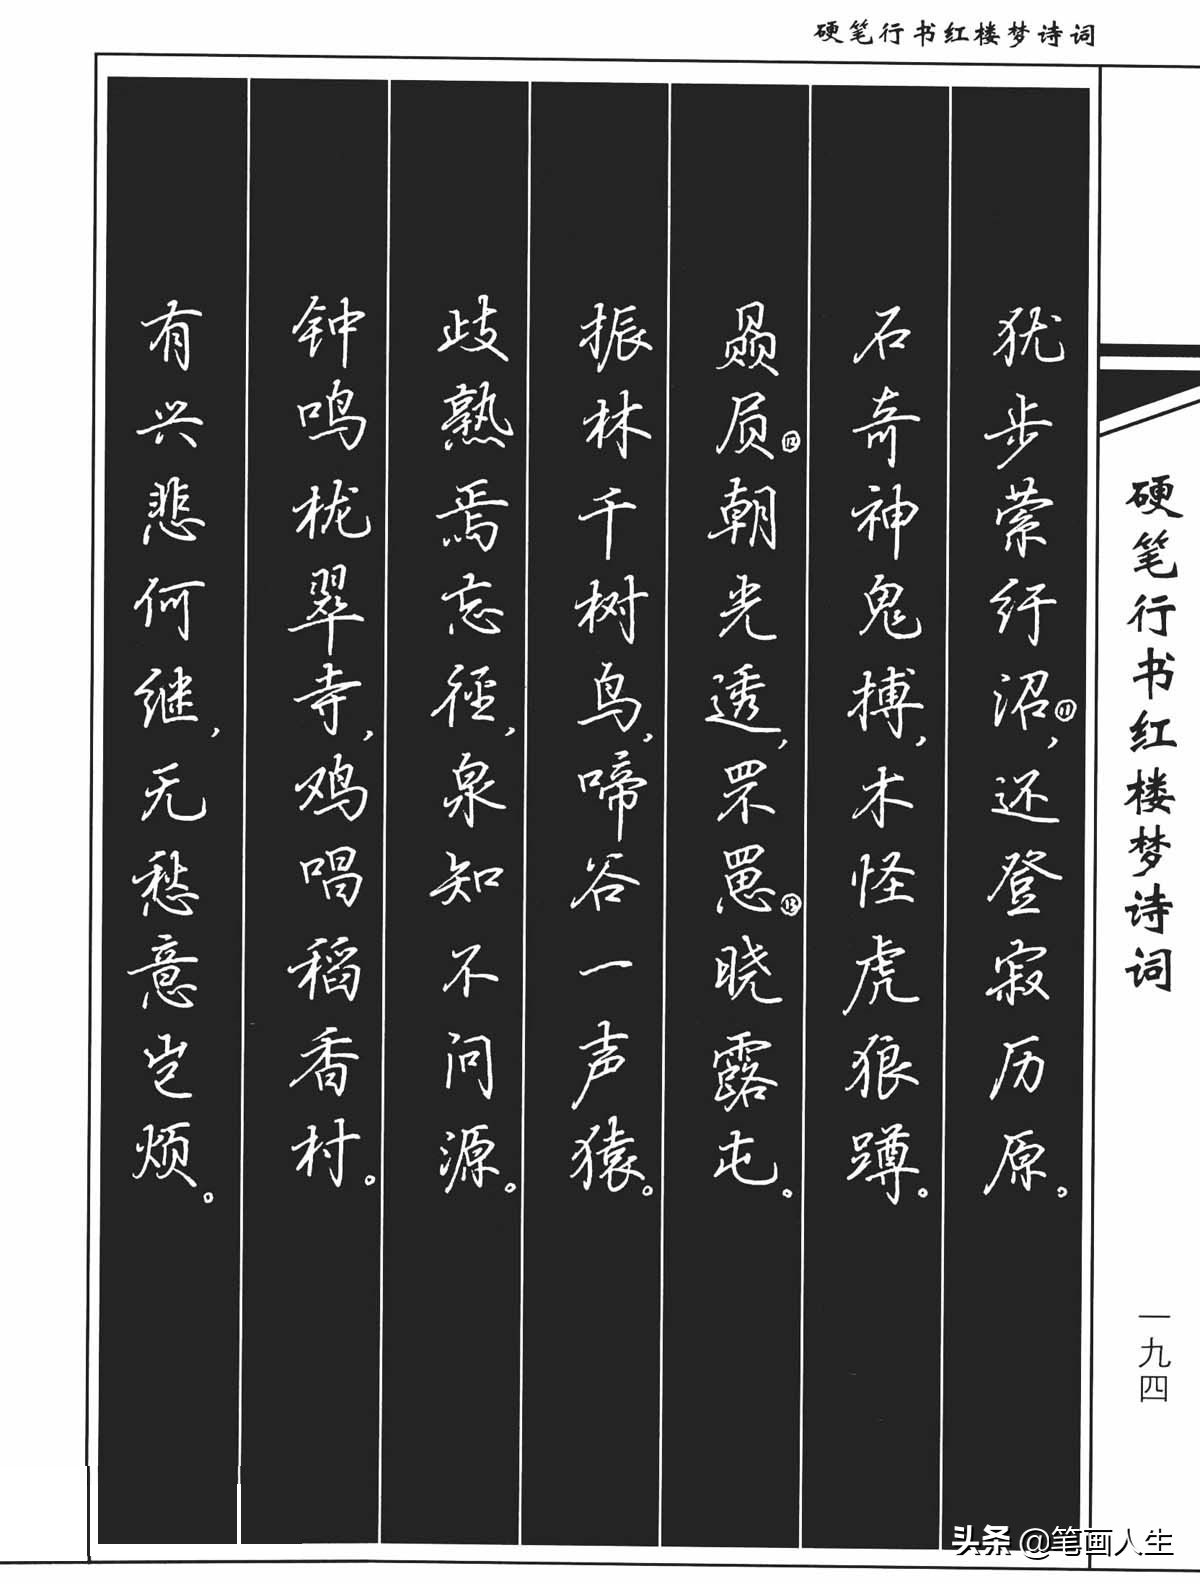 硬笔行书红楼梦诗词
犹步萦纡沼⑪,还登寂历原。
石奇神鬼搏,木怪虎狼蹲。
赑屃⑫朝光透,罘罳⑬晓露屯。
振林千树鸟,啼谷一声猿。
歧熟焉忘径,泉知不问源。
钟鸣栊翠寺,鸡唱稻香村。
有兴悲何继,无愁意岂烦。
硬笔行书红楼梦诗词
一九四
头条 @笔画人生